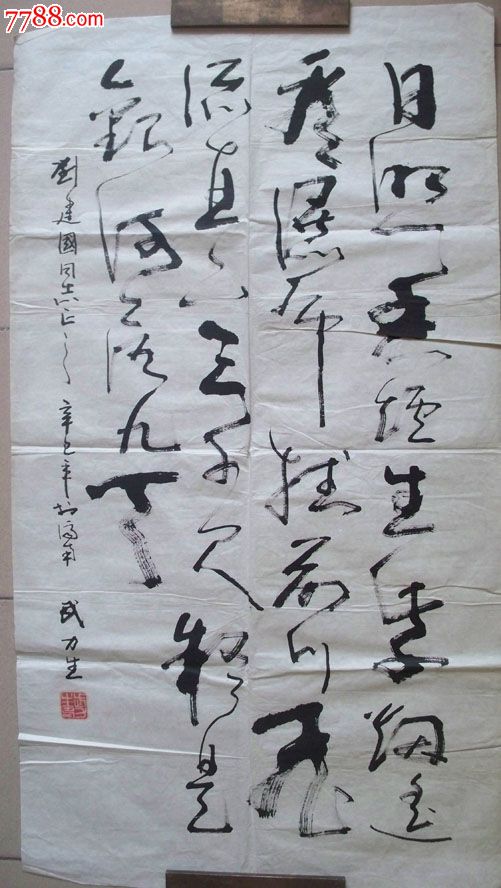 7788.com
日照香爐生紫烟遥
看瀑布挂前川飛
流直下三千尺疑是
銀河落九天
劉建國同志正之 辛巳年於濟南 武力生